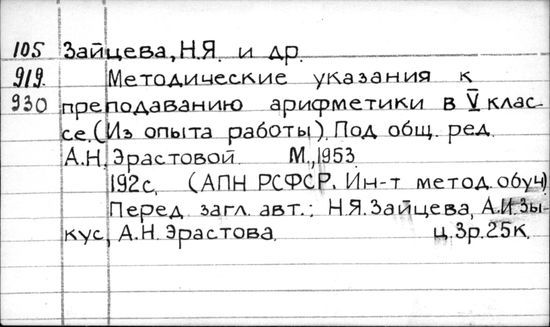 105 Зайцева, Н.Я. и др.
919. Методические указания к
930 преподаванию арифметики в V клас-
се. (Из опыта работы). Под общ. ред.
А.Н. Эрастовой. М., 1953.
192с. (АПН РСФСР. Ин-т метод. обуч)
Перед загл. авт.: Н.Я. Зайцева, А.И. Зы-
кус, А.Н. Эрастова. ц. 3р. 25к.